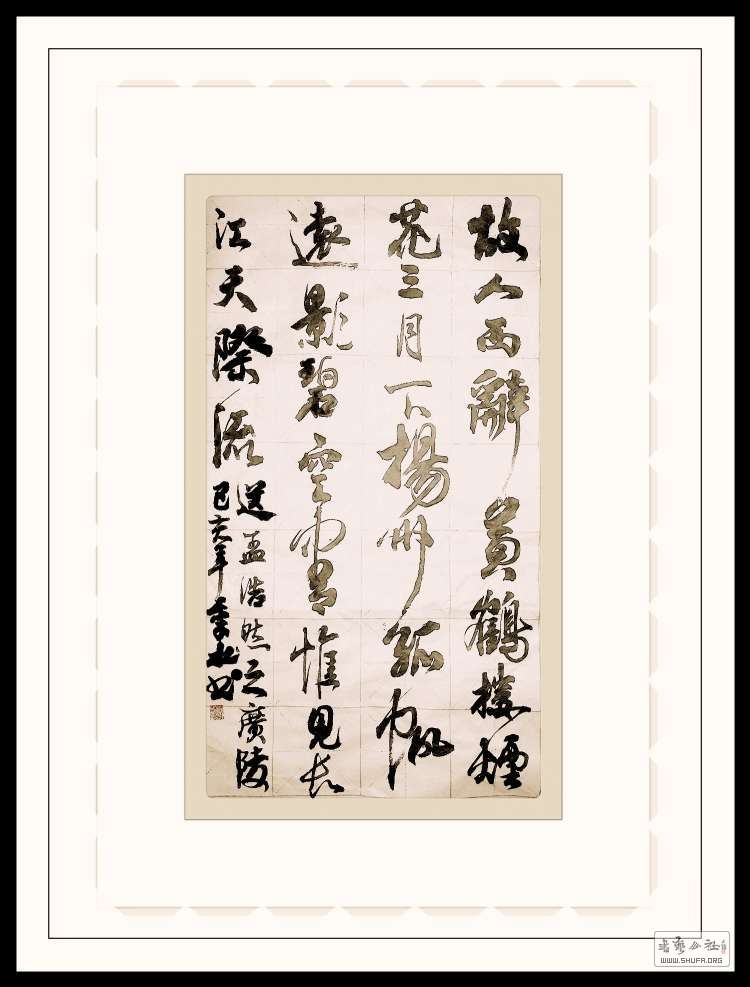 故人西辭黄鶴樓煙
花三月下揚州孤帆
遠影碧空盡惟見長
江天際流
送孟浩然之廣陵
己亥年
书艺公社
WWW.SHUFA.ORG